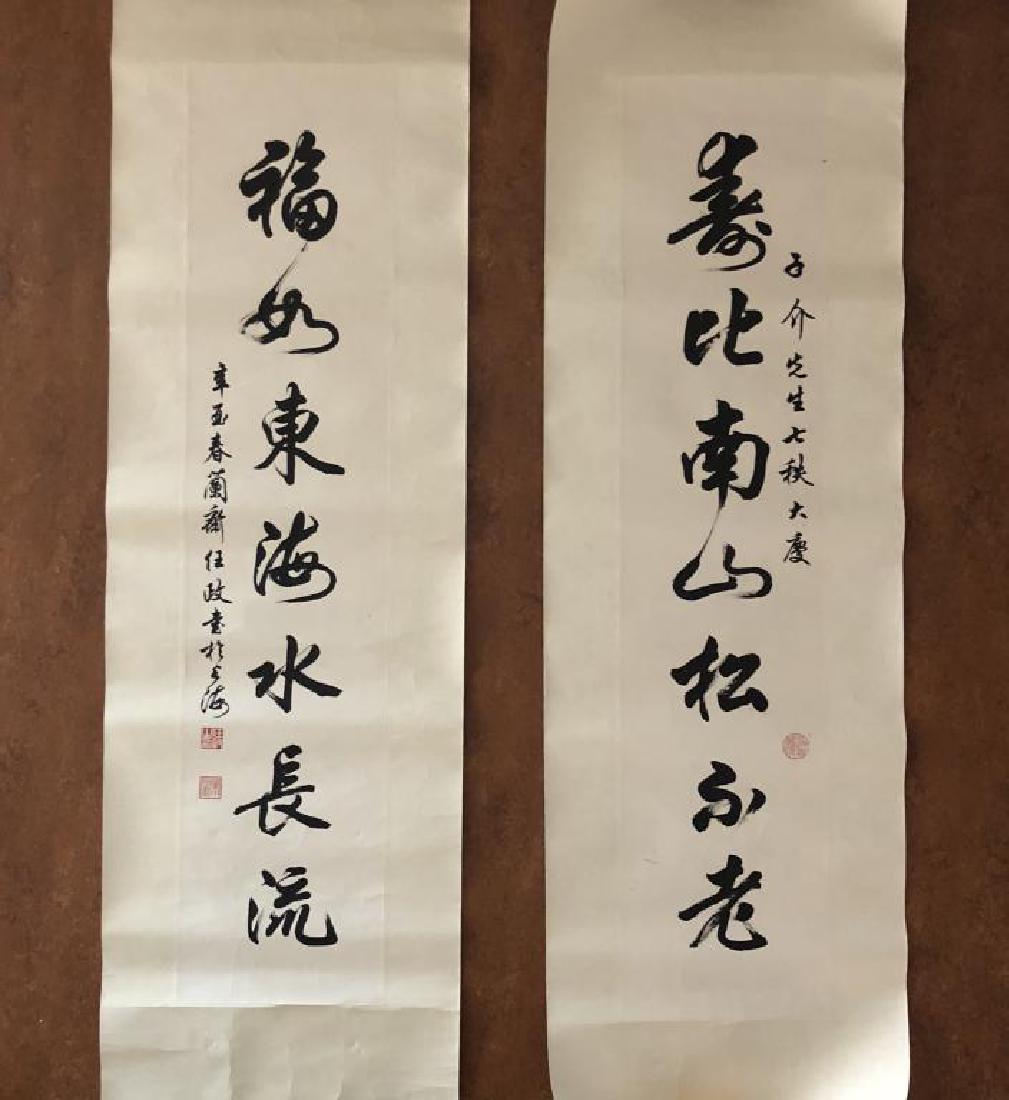 子介先生七秩大慶
壽比南山松不老
福如東海水長流
辛酉春蘭齋任政書於上海